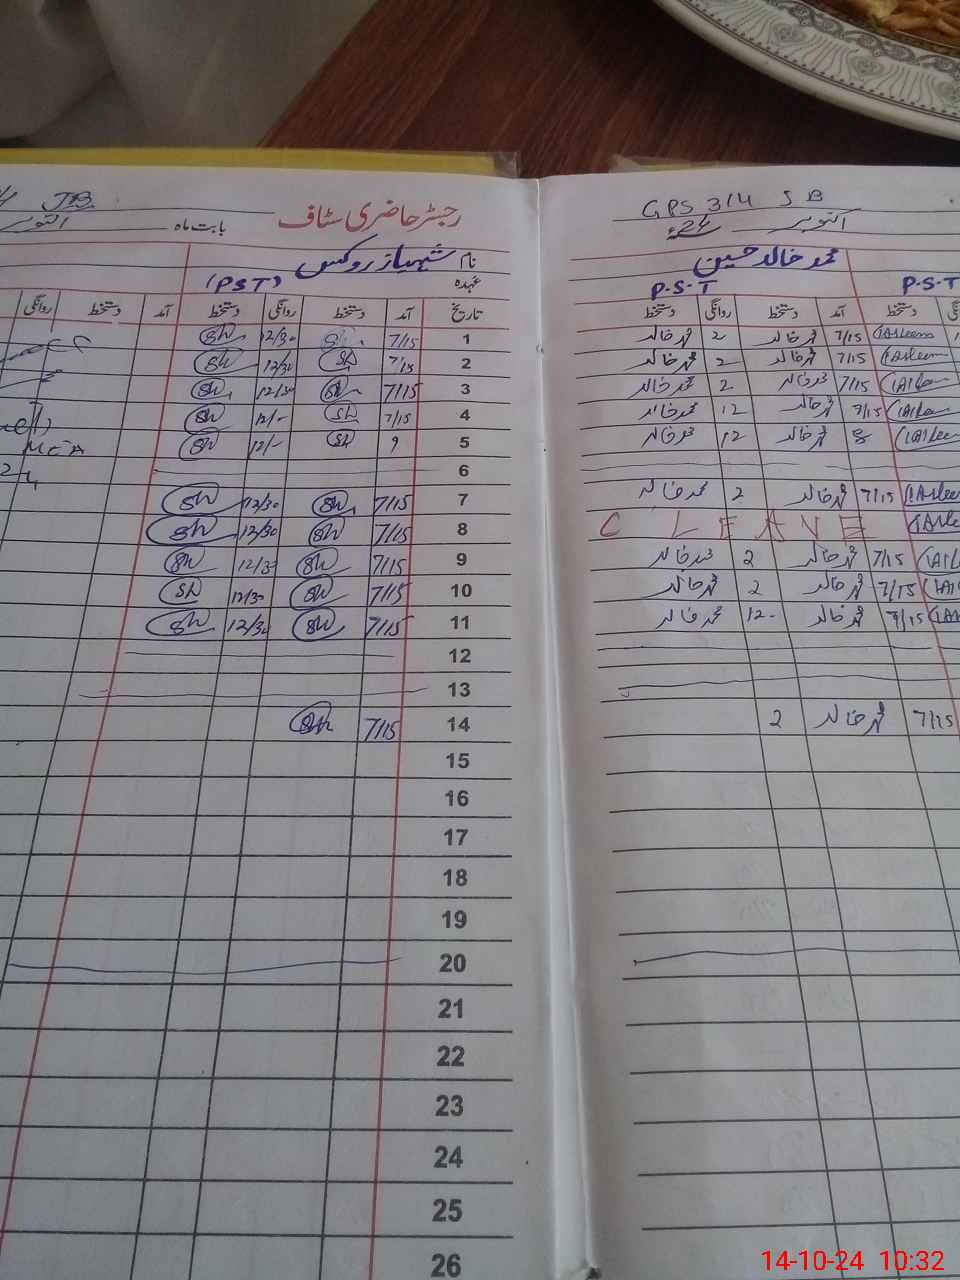 JB
GPS 314 J B
رجسٹر حاضری سٹاف
بابت ماہ
اکتوبر
اکتوبر 24ء
نام
شہباز روکس
محمد خالد حسین
عہدہ
(PST)
P.S.T
P.S.T
روانگی دستخط آمد دستخط روانگی دستخط آمد تاریخ
دستخط روانگی دستخط آمد دستخط
12/30 7/15 1
محمد خالد 2 محمد خالد 7/15
12/30 7/15 2
محمد خالد 2 محمد خالد 7/15
12/30 7/15 3
محمد خالد 2 محمد خالد 7/15
12/- 7/15 4
محمد خالد 12 محمد خالد 7/15
12/- 9 5
محمد خالد 12 محمد خالد 8
6
12/30 7/15 7
محمد خالد 2 محمد خالد 7/15
12/30 7/15 8
C LEAVE
12/30 7/15 9
محمد خالد 2 محمد خالد 7/15
12/30 7/15 10
محمد خالد 2 محمد خالد 7/15
12/30 7/15 11
محمد خالد 12- محمد خالد 7/15
12
13
7/15 14
2 محمد خالد 7/15
15
16
17
18
19
20
21
22
23
24
25
26
14-10-24 10:32